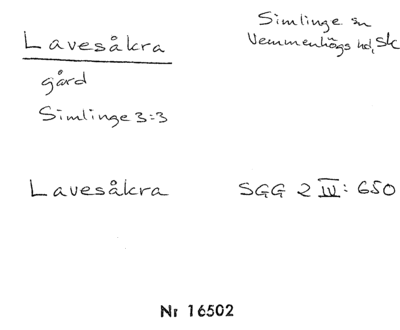 Lavesåkra
Simlinge sn
Vemmenhögs hd, Sk
gård
Simlinge 3:3
Lavesåkra SGG 2 IV: 650
Nr 16502